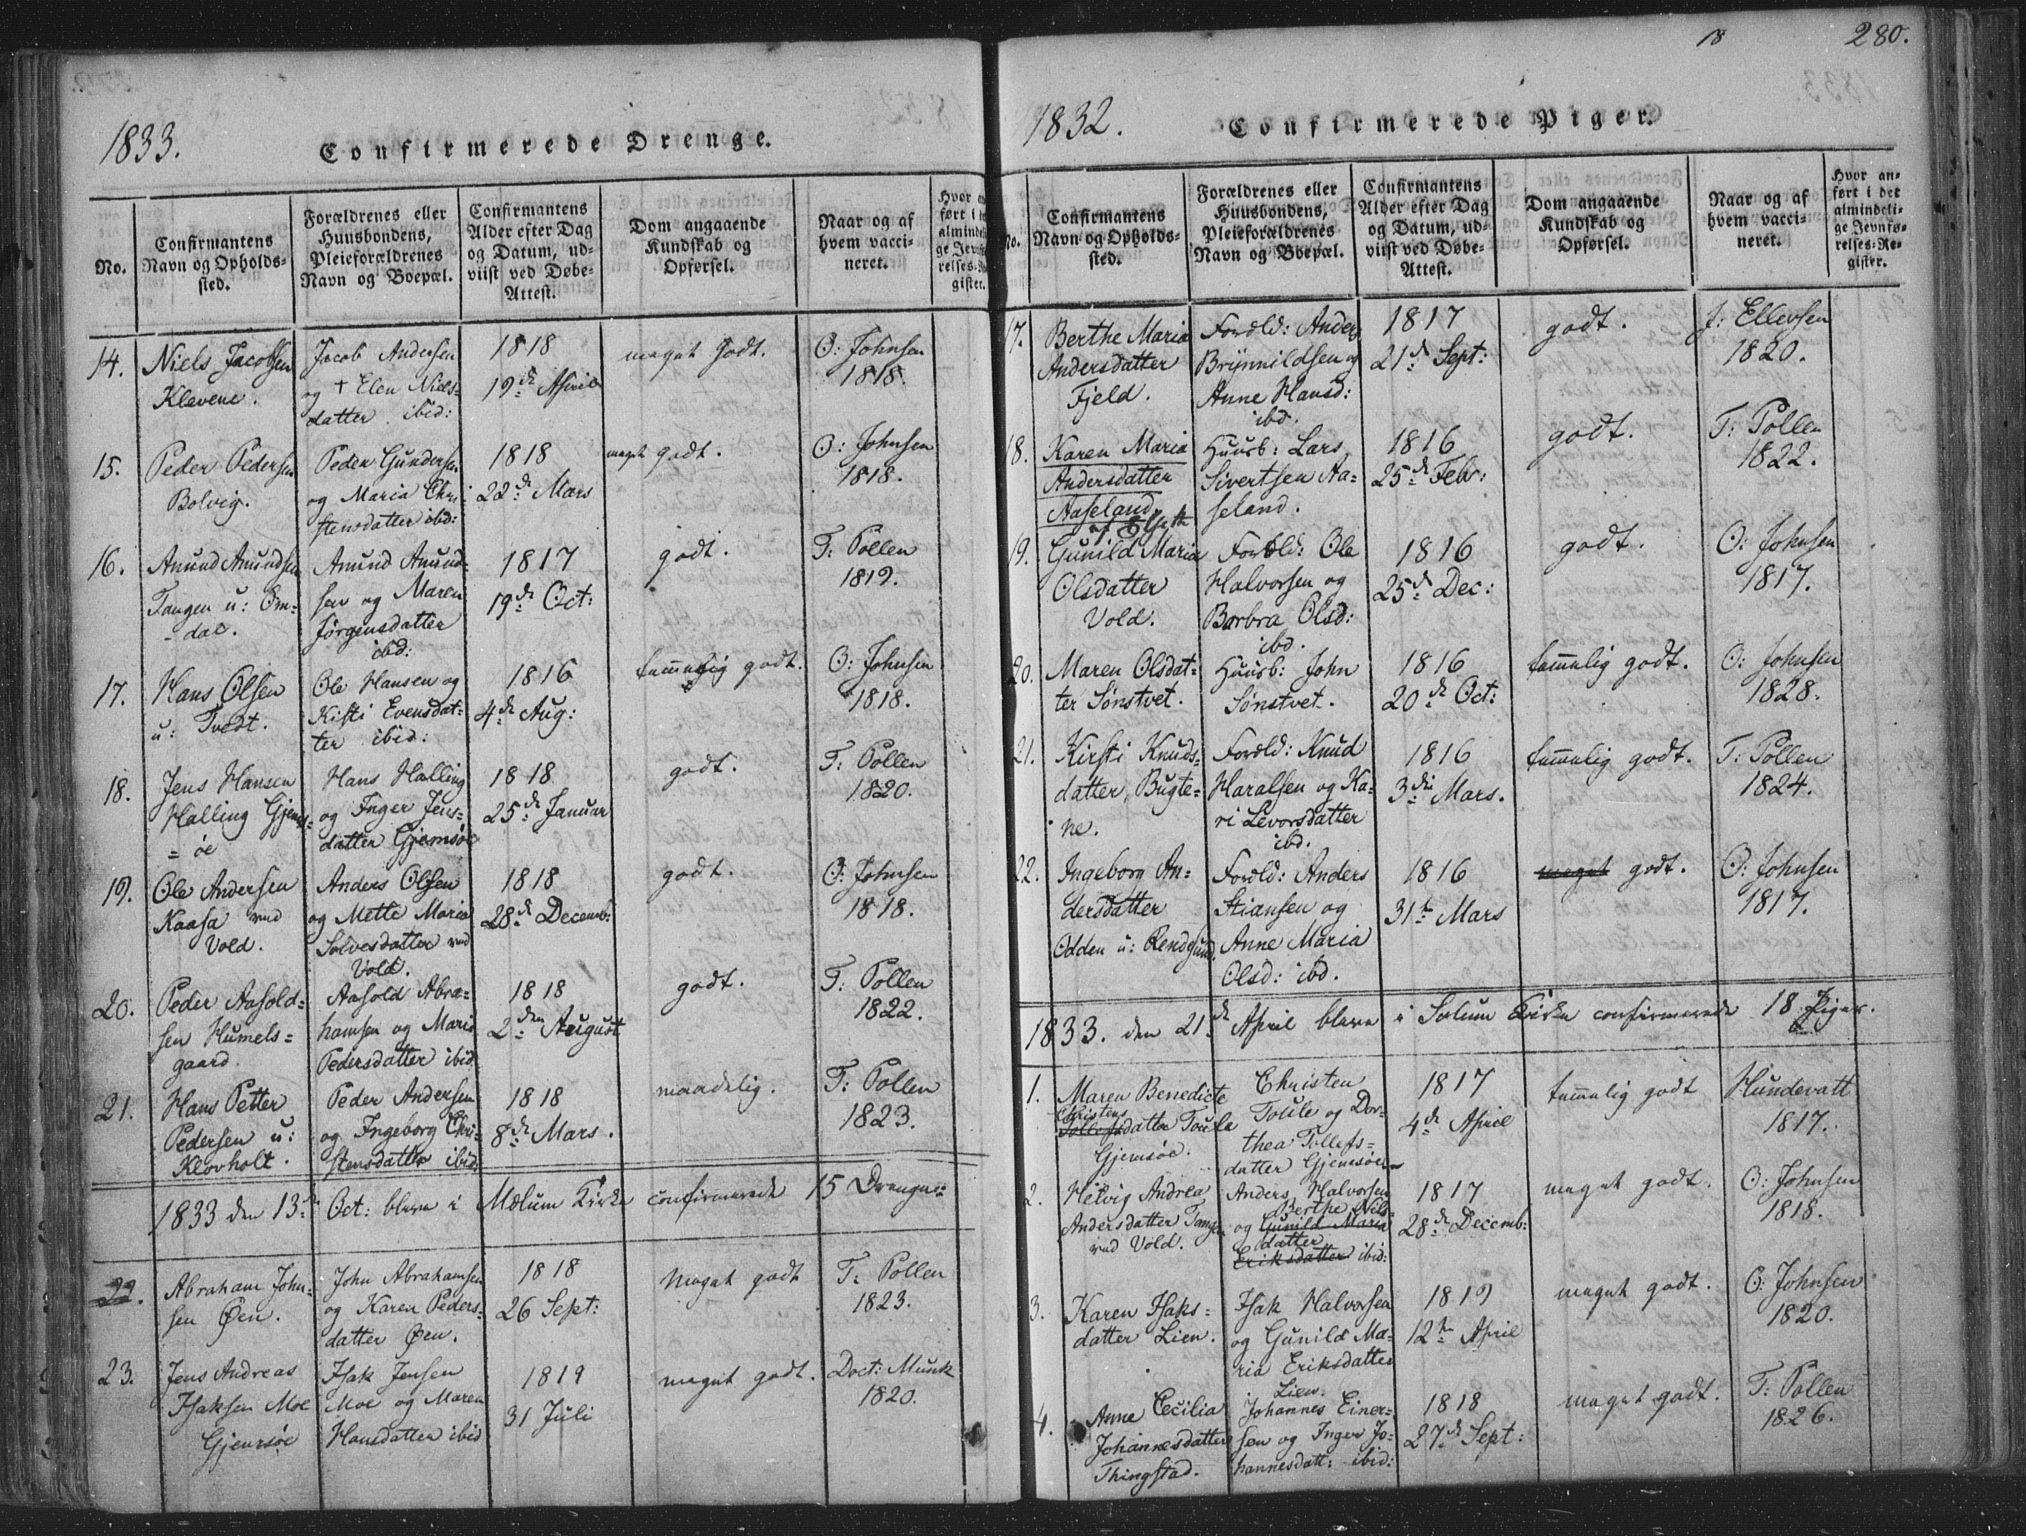 1833.
Confirmerede Drenge.
No.
Confirmantens
Navn og Opholds-
sted.
Forældrenes eller
Huusbondens,
Pleieforældrenes
Navn og Boepæl.
Confirmantens
Alder efter Dag
og Datum, ud-
viist ved Døbe-
Attest.
Dom angaaende
Kundskab og
Opførsel.
Naar og af
hvem vacci-
neret.
14.
Niels Jacobsen
Klevene.
Jacob Andersen
og + Elen Niels-
datter ibid:
1818
19de April
meget Godt.
O: Johnsen
1818.
15.
Peder Pedersen
Bolvig.
Peder Gundersen
og Maria Chri-
stensdatter ibd:
1818
22de Mars
meget godt.
O: Johnsen
1818.
16.
Amund Amundsen
Tangen u: Om-
-dal.
Amund Amund-
sen og Maren
Jørgensdatter
ibd:
1817
19de Oct:
godt.
T: Pollen
1819.
17.
Hans Olsen
u: Tvedt.
Ole Hansen og
Kisti Evensdat-
ter ibid:
1816
4de Aug:
temmelig godt.
O: Johnsen
1818.
18.
Jens Hansen
Halling Gjems-
=øe
Hans Halling
og Inger Jens-
datter Gjemsøe
1818
25de Januar
godt.
T: Pollen
1820.
19.
Ole Andersen
Kaasa ved
Vold.
Anders Olsen
og Mette Maria
Solvesdatter ved
Vold.
1818
28de Decemb:
godt.
O: Johnsen
1818.
20.
Peder Aasold-
sen Humels-
gaard
Aasold Abra-
hamsen og Maria
Pedersdatter ibid
1818
2den August
godt.
T: Pollen
1822.
21.
Hans Petter
Pedersen u:
Klovholt.
Peder Andersen
og Ingeborg Chri-
stensdatter ibid.
1818
8de Mars.
maadelig.
T: Pollen
1823.
1833 den 13de Oct: bleve i Mælum Kirke confirmerede 15 Drenge:
22.
Abraham John-
sen Øen.
John Abrahamsen
og Karen Peders-
datter Øen.
1818
26 Sept:
Meget godt
T: Pollen
1823.
23.
Jens Andreas
Isaksen Moe
Gjemsøe
Isak Jensen
Moe og Maren
Hansdatter ibid
1819
31 Juli
meget godt.
Doct: Munk
1820.
18
280.
1832.
Confirmerede Piger.
No.
Confirmantens
Navn og Opholds-
sted.
Forældrenes eller
Huusbondens,
Pleieforældrenes
Navn og Boepæl.
Confirmantens
Alder efter Dag
og Datum, ud-
viist ved Døbe-
Attest.
Dom angaaende
Kundskab og
Opførsel.
Naar og af
hvem vacci-
neret.
Hvor an-
ført i det
almindeli-
ge Jevnfø-
relses-Re-
gister.
17.
Berthe Maria
Andersdatter
Fjeld.
Foreld: Anders
Brynnildsen og
Anne Hansd:
ibd.
1817
21de Sept:
godt.
J: Ellevsen
1820.
18.
Karen Maria
Andersdatter
Aaseland
Huusb: Lars
Sivertsen Aa-
seland.
1816
25de Febr:
godt.
T: Pollen
1822.
19.
Gunild Maria
Olsdatter
Vold.
Foreld: Ole
Halvorsen og
Barbra Olsd:
ibd.
1816
25de Dec:
godt.
O: Johnsen
1817.
20.
Maren Olsdat-
ter Sønstvet.
Huusb: John
Sønstvet.
1816
20de Oct:
temmelig godt.
O: Johnsen
1828.
21.
Kirsti Knuds-
datter, Bugte-
ne.
Foreld: Knud
Haralsen og Ka-
ri Levorsdatter
ibd.
1816
3die Mars.
temmelig godt.
T: Pollen
1824.
22.
Ingeborg An-
dersdatter
Odden u: Rendesund.
Foreld: Anders
Stiansen og
Anne Maria
Olsd: ibd.
1816
31te Mars
meget godt.
O: Johnsen
1817.
1833. den 21de April bleve i Solum Kirke confirmerede 18 Piger.
1.
Maren Benedicte
Christens
datter Toule
Gjemsøe.
Christen
Toule og Dor-
thea Tollefs-
datter Gjemsøe
1817
4de April
temmelig godt
Hundevatt
1817.
2.
Helvig Andrea
Andersdatter Tangen
ved Vold.
Anders Halvorsen
Berthe Nils-
og Gunild Maria
datter
Eriksdatter ibid:
1817
28de Decemb:
meget godt.
O: Johnsen
1818.
3.
Karen Isaks-
datter Lien.
Isak Halvorsen
og Gunild Ma-
ria Eriksdatter
Lien.
1819
12te April
meget godt.
O: Johnsen
1820.
4.
Anne Cecilia
Johannesdatter
Thingstad.
Johannes Einer-
sen og Inger Jo-
hannesdatt: ibid:
1818
27de Sept:
meget godt.
T: Pollen
1826.